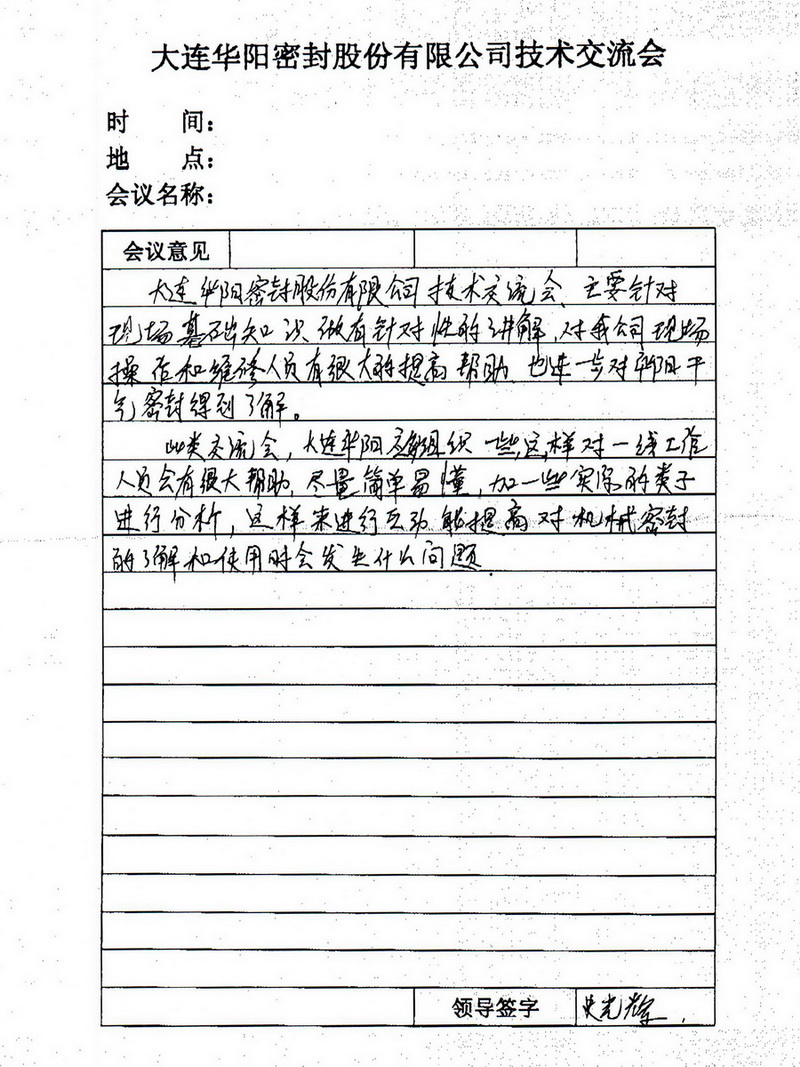 大连华阳密封股份有限公司技术交流会
时 间：
地 点：
会议名称：
会议意见
大连华阳密封股份有限公司技术交流会、主要针对
现场基础知识，做有针对性的讲解，对我公司现场
操作和维修人员有很大的提高帮助，也进一步对华阳干
气密封得到了解。
此类交流会，大连华阳应多组织一些，这样对一线工作
人员会有很大帮助，尽量简单易懂，加一些实际的类子
进行分析，这样来进行互动能提高对机械密封
的了解和使用时会发生什么问题.
领导签字